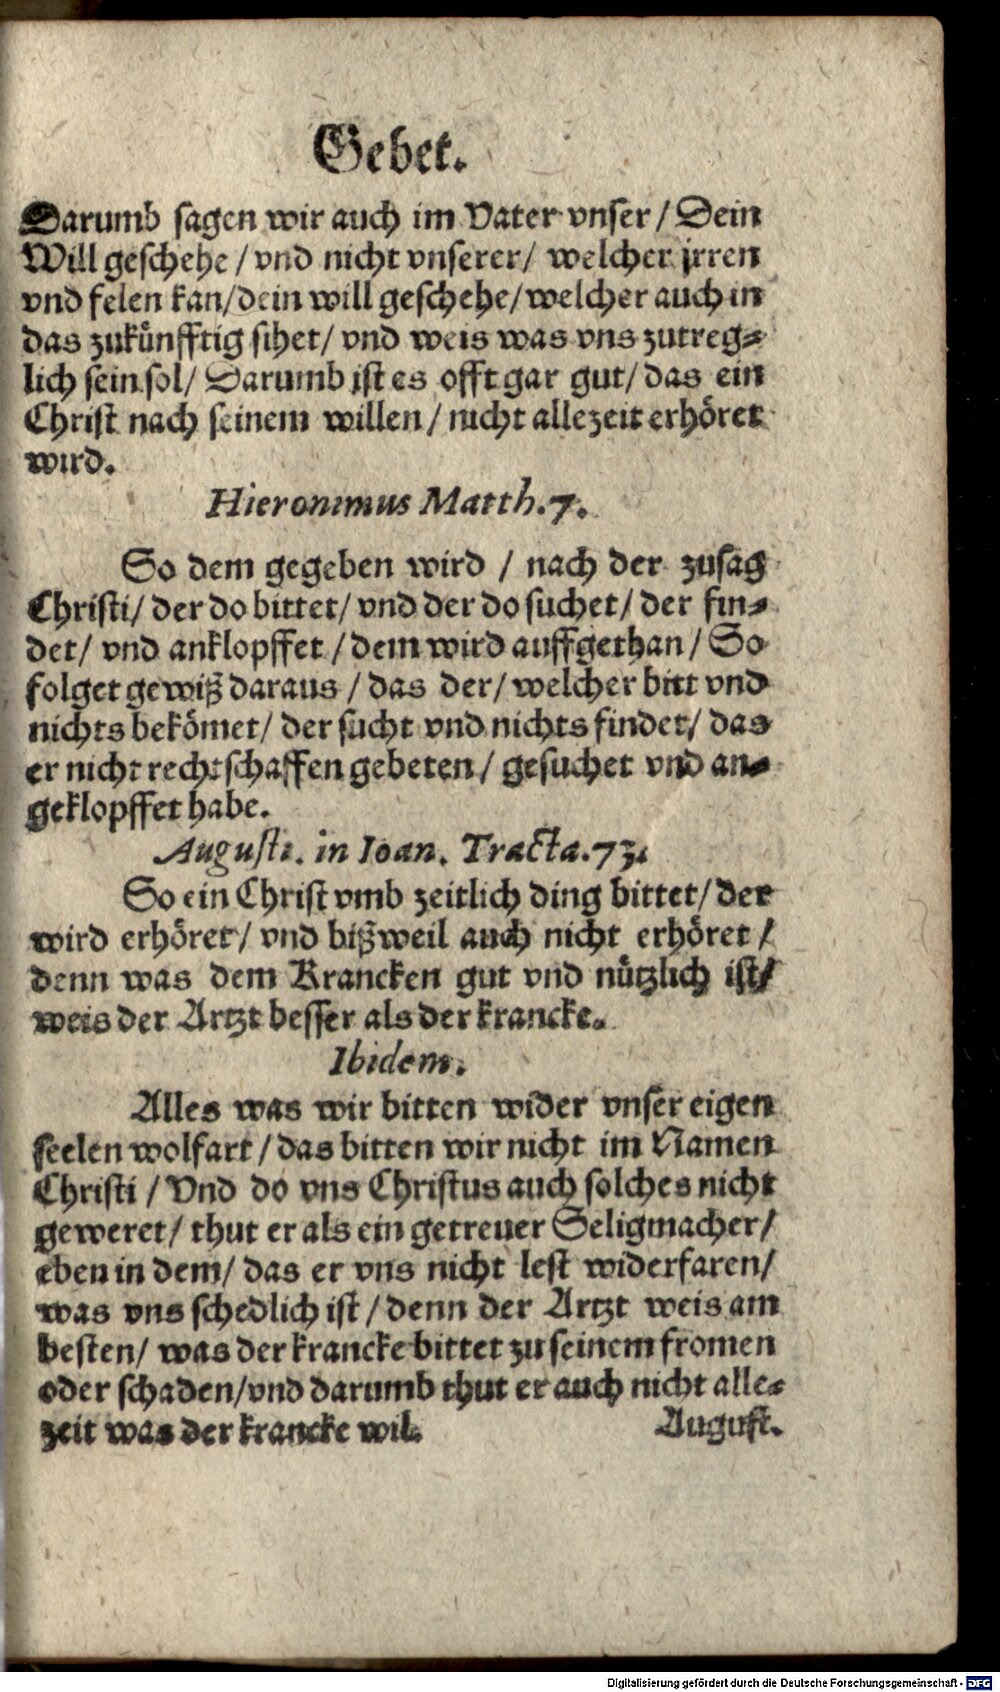 Gebet.
Darumb sagen wir auch im Vater vnser / Dein
Will geschehe / vnd nicht vnserer / welcher jrren
vnd felen kan / dein will geschehe / welcher auch in
das zukünfftig sihet / vnd weis was vns zutreg-
lich sein sol / Darumb ist es offt gar gut / das ein
Christ nach seinem willen / nicht allezeit erhöret
wird.
Hieronimus Matth. 7.
So dem gegeben wird / nach der zusag
Christi / der do bittet / vnd der do suchet / der fin-
det / vnd anklopffet / dem wird auffgethan / So
folget gewiß daraus / das der / welcher bitt vnd
nichts bekömet / der sucht vnd nichts findet / das
er nicht rechtschaffen gebeten / gesuchet vnd an-
geklopffet habe.
Augusti. in Ioan. Tracta. 73.
So ein Christ vmb zeitlich ding bittet / der
wird erhöret / vnd bißweil auch nicht erhöret /
denn was dem Krancken gut vnd nützlich ist /
weis der Artzt besser als der krancke.
Ibidem.
Alles was wir bitten wider vnser eigen
seelen wolfart / das bitten wir nicht im Namen
Christi / Vnd do vns Christus auch solches nicht
geweret / thut er als ein getreuer Seligmacher /
eben in dem / das er vns nicht lest widerfaren /
was vns schedlich ist / denn der Artzt weis am
besten / was der krancke bittet zu seinem fromen
oder schaden / vnd darumb thut er auch nicht alle-
zeit was der krancke wil.
August.
Digitalisierung gefördert durch die Deutsche Forschungsgemeinschaft - DFG